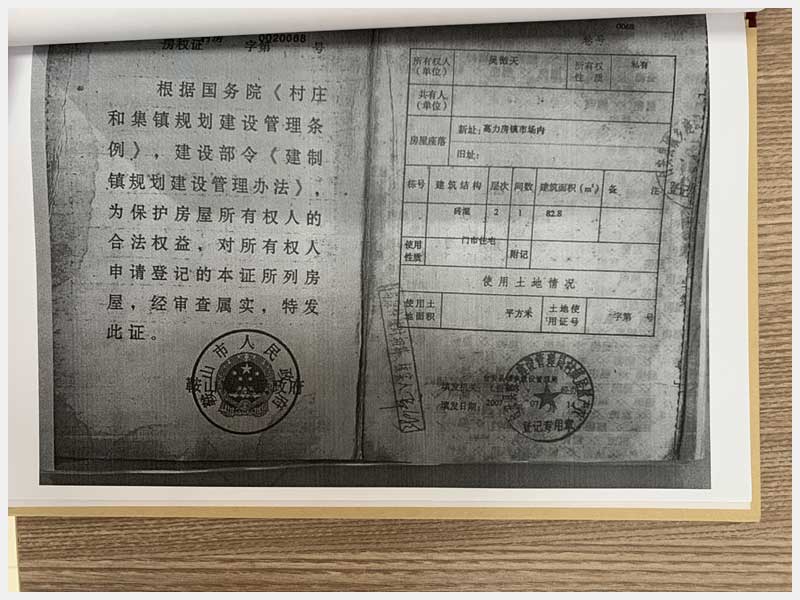 房权证 字第 0020068 号
根据国务院《村庄
和集镇规划建设管理条
例》，建设部令《建制
镇规划建设管理办法》，
为保护房屋所有权人的
合法权益，对所有权人
申请登记的本证所列房
屋，经审查属实，特发
此证。
鞍山市人民政府
鞍山市人民政府
0068
所有权人
（单位）
所有权
性质
私有
共有人
（单位）
房屋座落
新址：高力房镇市场内
旧址：
栋号 建筑结构 层次 间数 建筑面积（m²） 备 注
砖混 2 1 82.8
使用
性质
门市住宅
附记
使用土地情况
使用土
地面积
平方米
土地使
用证号
字第 号
填发机关：
填发日期：2007
登记专用章